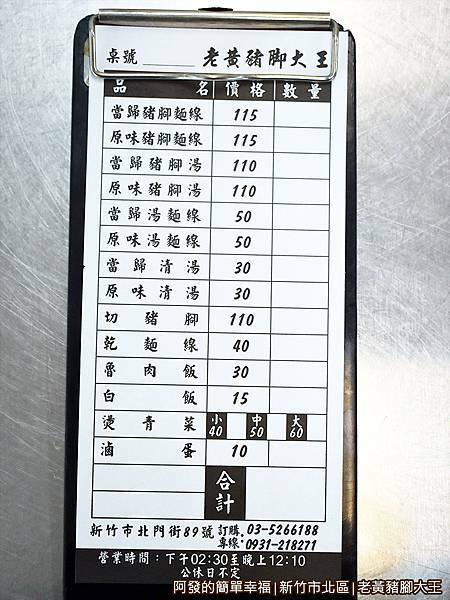 桌號 老黃豬脚大王
品名 價格 數量
當歸豬腳麵線 115
原味豬腳麵線 115
當歸豬腳湯 110
原味豬腳湯 110
當歸湯麵線 50
原味湯麵線 50
當歸清湯 30
原味清湯 30
切豬腳 110
乾麵線 40
魯肉飯 30
白飯 15
燙青菜 小40 中50 大60
滷蛋 10
合計
新竹市北門街89號 訂購專線: 03-5266188
0931-218271
營業時間:下午02:30至晚上12:10
公休日不定
阿發的簡單幸福|新竹市北區|老黃豬腳大王